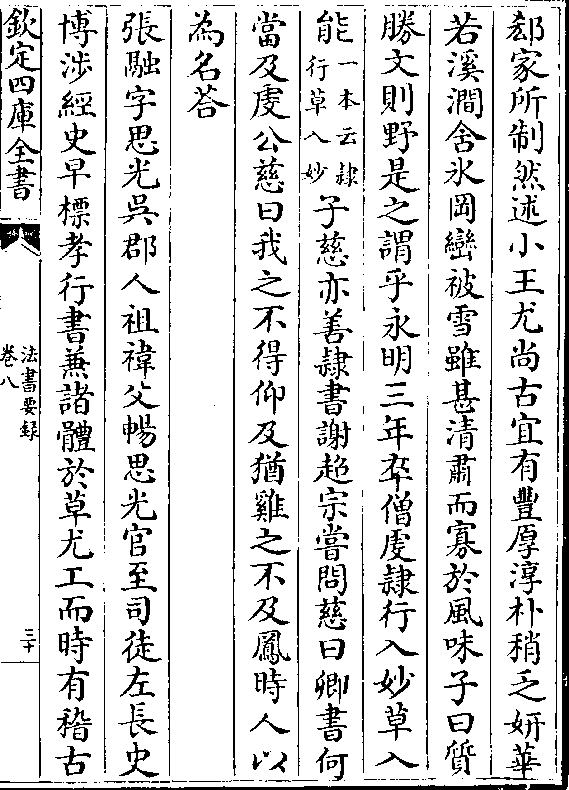 郄家所制然述小王尤尚古宜有豐厚淳朴稍乏妍華
若溪澗含氷岡巒被雪雖甚清肅而寡於風味子曰質
勝文則野是之謂乎永明三年卒僧䖍隸行入妙草入
能一本云隸行草入妙子慈亦善隸書謝超宗嘗問慈曰卿書何
當及䖍公慈曰我之不得仰及猶雞之不及鳳時人以
為名荅
張融字思光吳郡人祖禕父暢思光官至司徒左長史
博涉經史早標孝行書兼諸體於草尤工而時有稽古
欽定四庫全書
法書要錄
卷八
三十